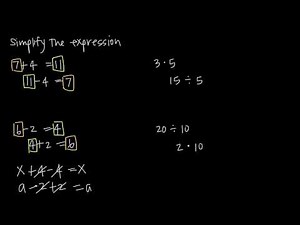 Simplify the expression
7+4 = 11
11-4 = 7
3 · 5
15 ÷ 5
6-2 = 4
4+2 = 6
20 ÷ 10
2 · 10
x+4-4 = x
a-2+2 = a